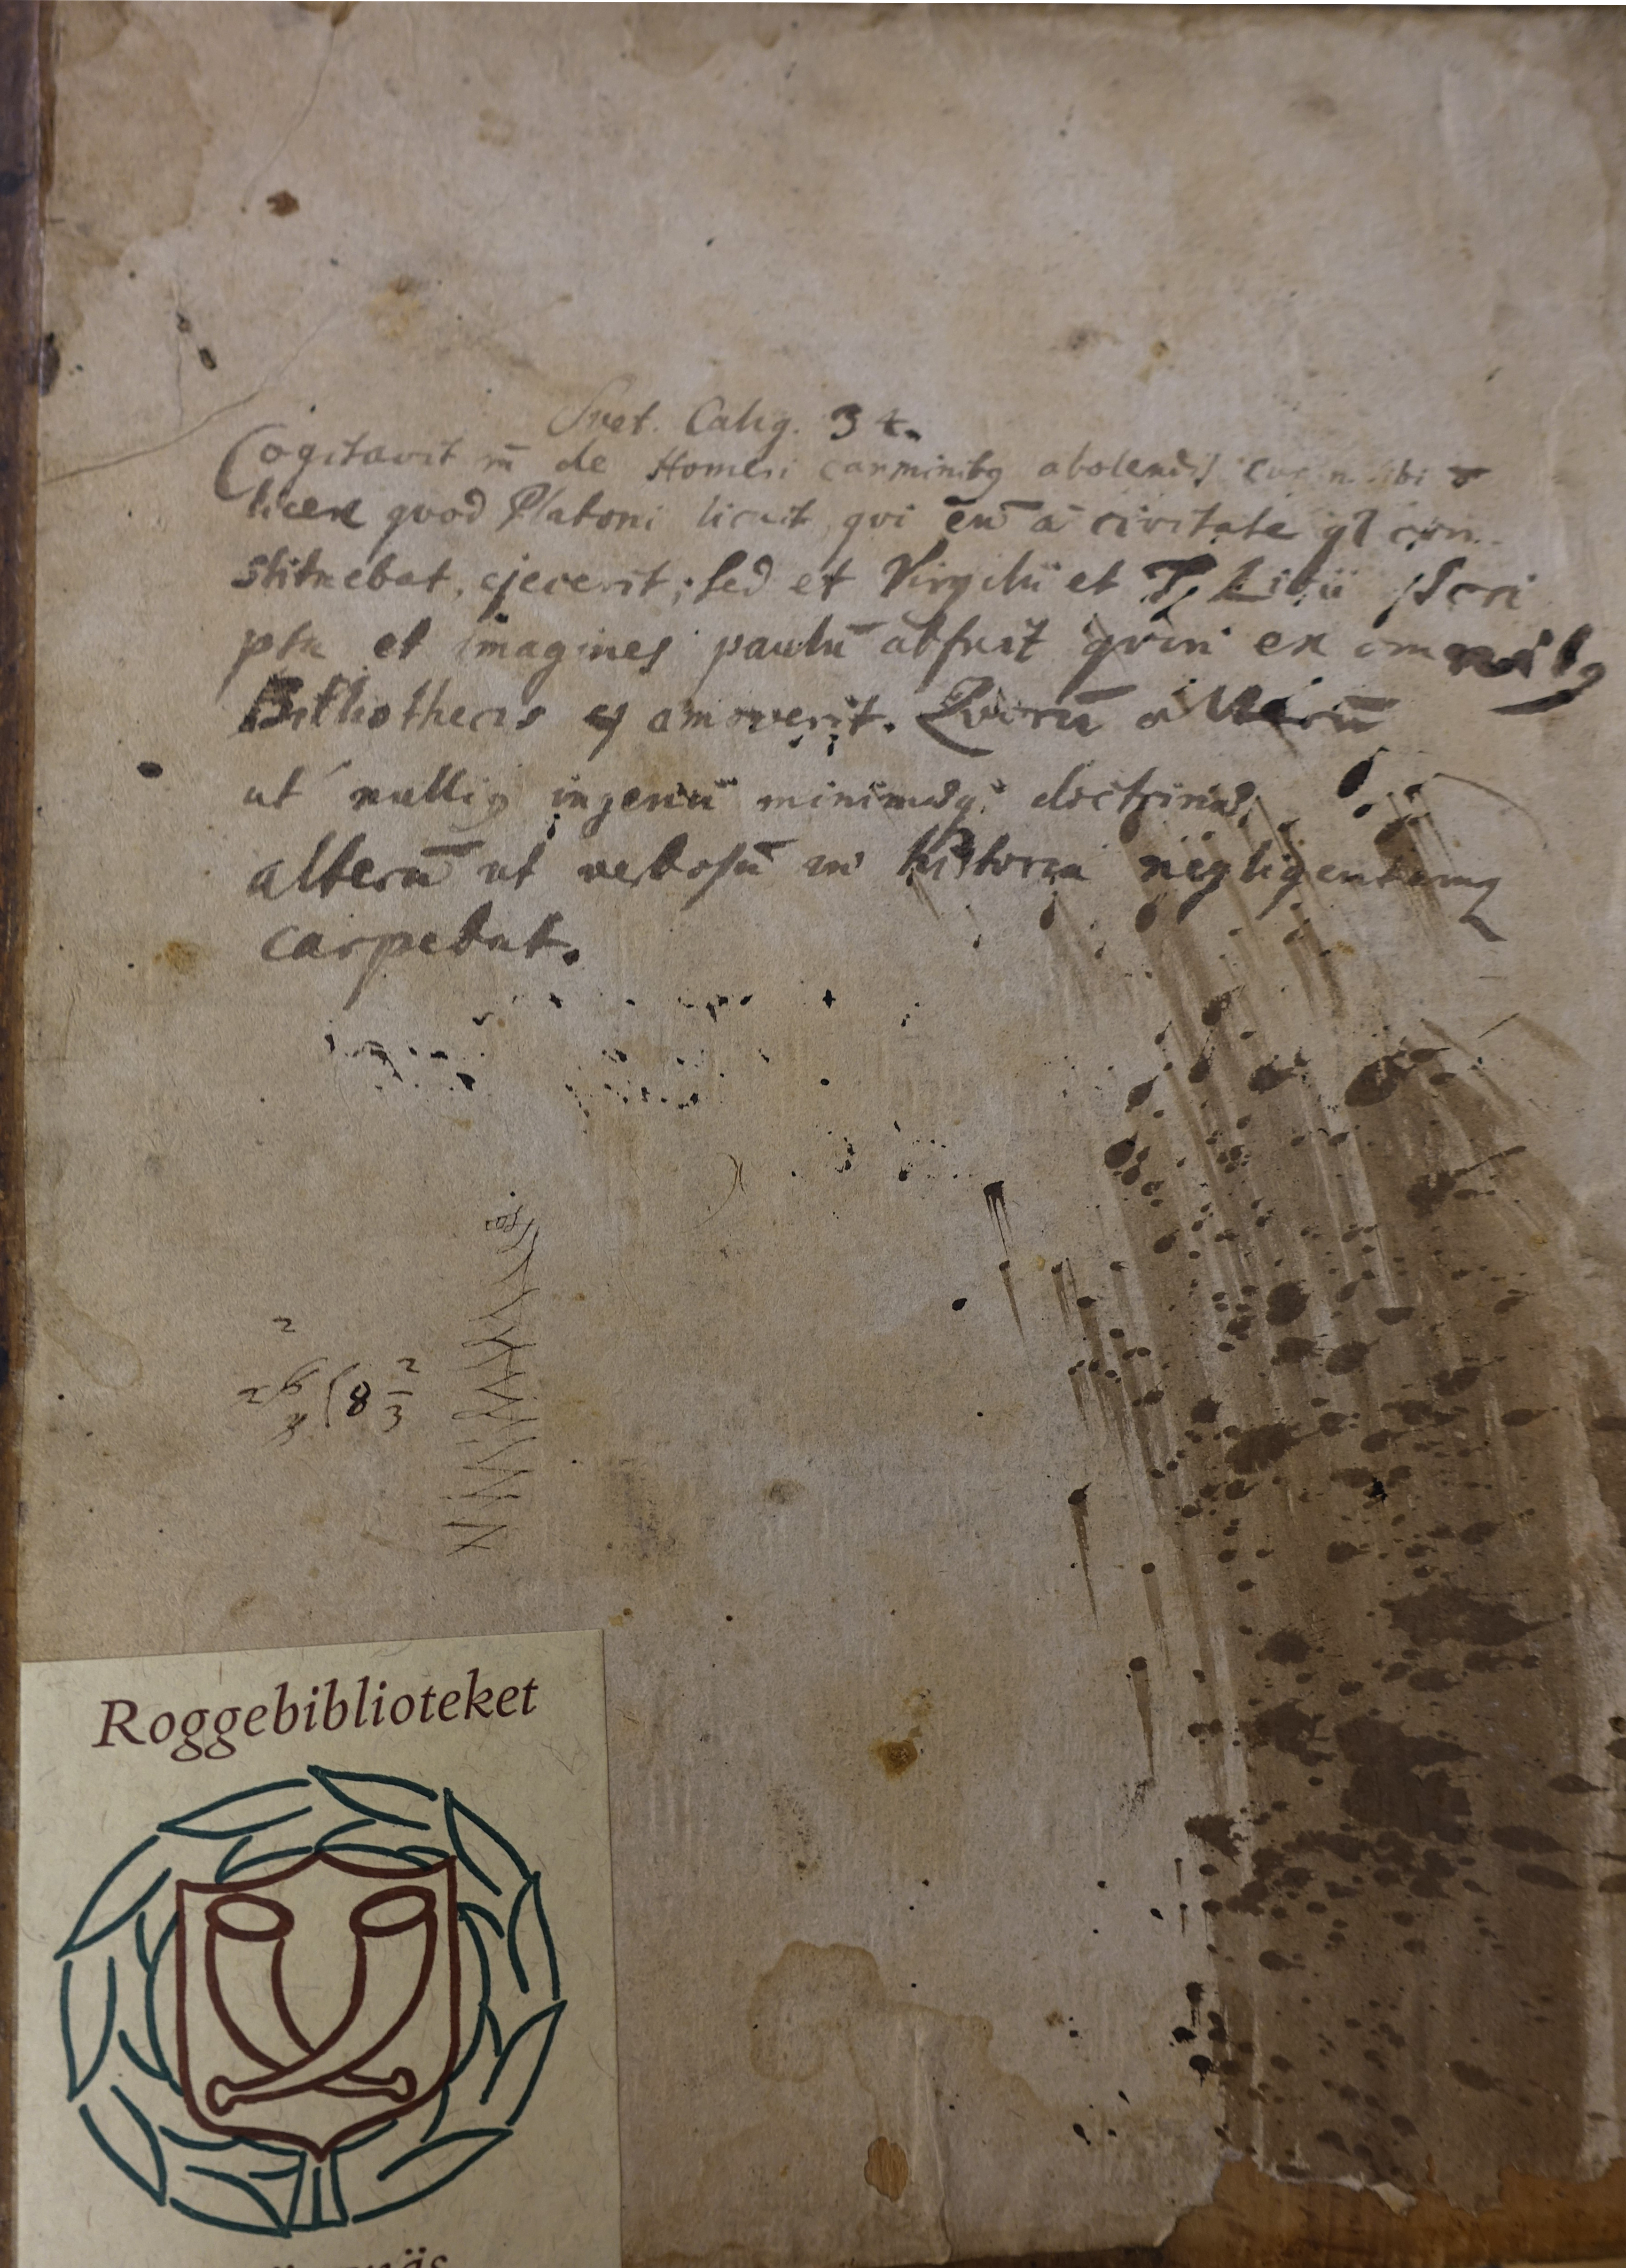 Svet. Calig. 34.
Cogitavit m̄ de Homeri carminibꝫ abolendis cur n. sibi ō
licere qvod Platoni licuit, qvi eū a civitate qꝫ con-
stituebat, ejecerit; sed et Virgilii et T. Livii scri
pta et imagines paulū abfuit qvin ex omnibꝫ
Bibliothecis amoverit. Qvorū alterū
ut nulliꝫ ingenii minimæqꝫ doctrinæ,
alterū ut verbosū in historia negligentemqꝫ
carpebat.
2
26 (8 2/3
3
Roggebiblioteket